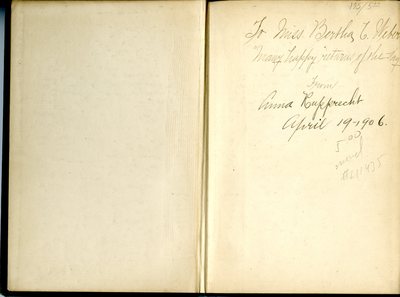 To Miss Bertha C. Weber
"Many happy returns of the day"
From
Anna Rupprecht
April 19-1906.
5.00